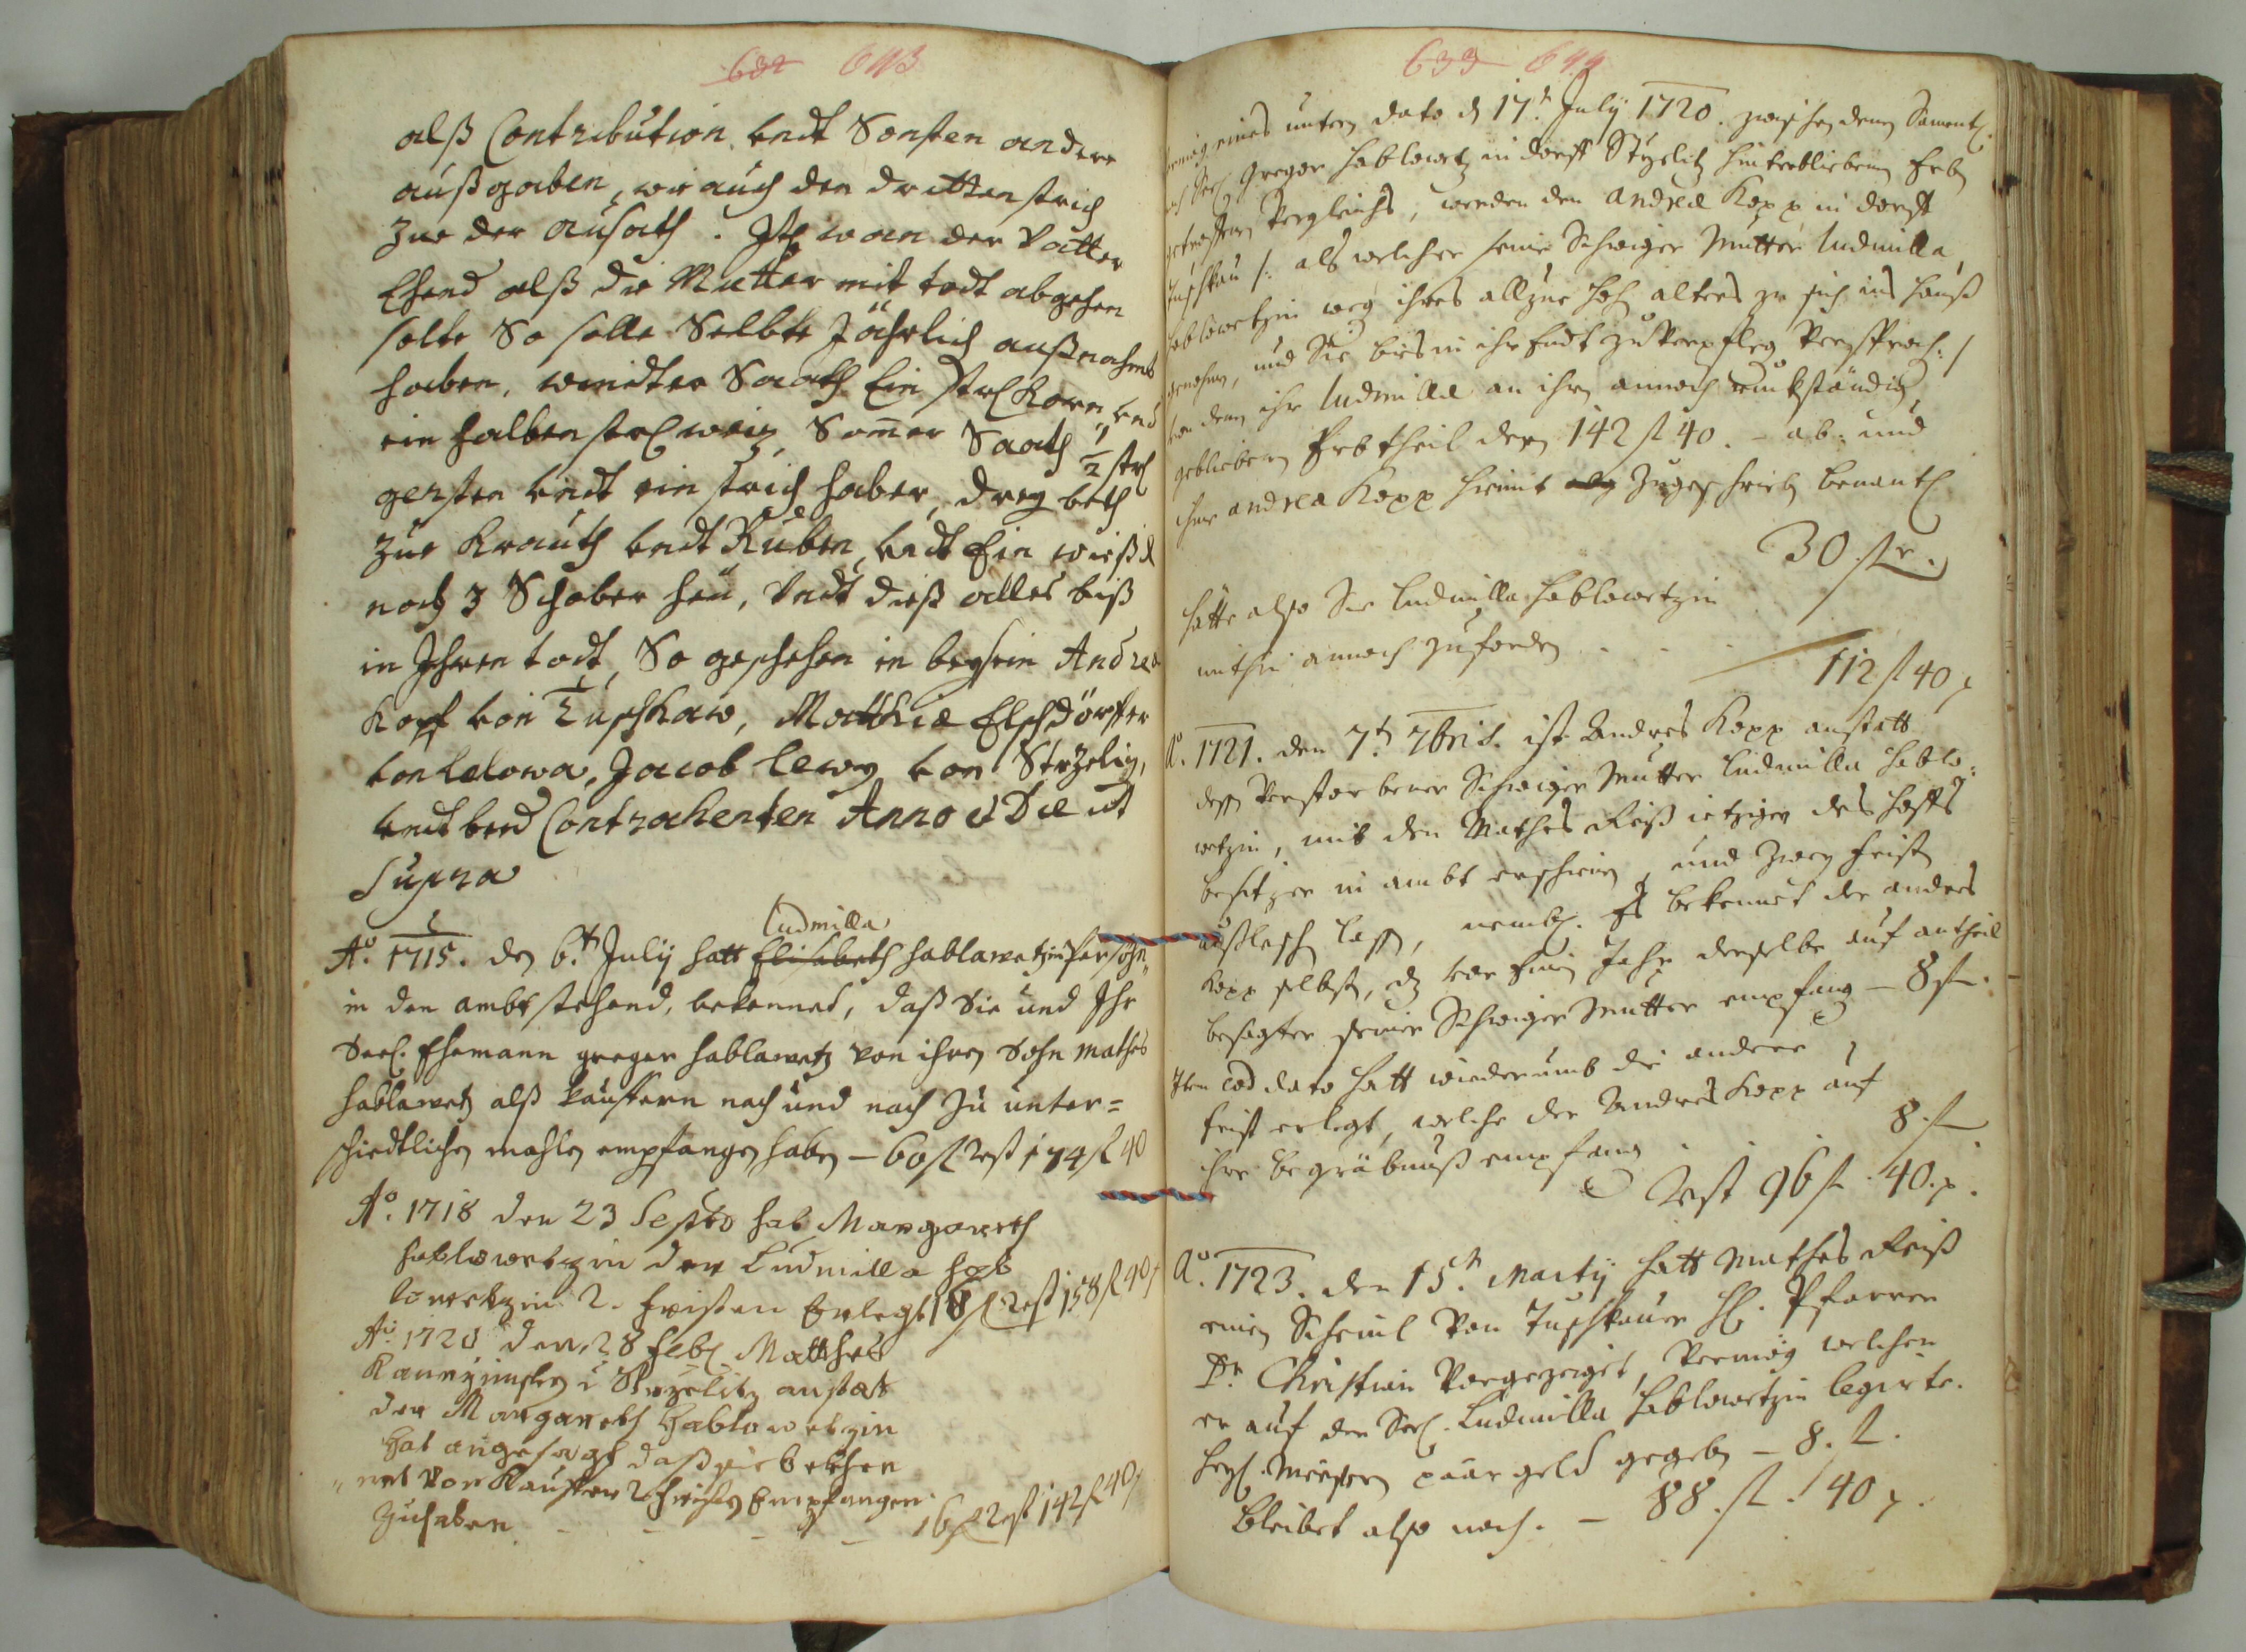 632 643
alß Contribution undt Sonsten andere
außgaben, wie auch den dritten strich
Zue der außath. Itl wan der Vatter
Ehend alß die Mutter mit todt abgehen
solte So solle Selbte Jährlich außnahmb
haben, windter Saath Ein strl Korn, und
ein halben strl weiz, Som̄er Saath ½ strl
gersten undt ein strich haber, drey beth
zue Krauth undt Rüben, undt Ein wießl
noch 3 Schober heü, Undt dieß alles biß
in Ihren todt, So geschehen in beysein Andrea
Kopf von Tuschkaw, Matthia Elschdörffer
von Lelowa, Jacob Lewy von Strzeliz,
undt beed Contrahenten Anno et Die ut
Supra
Ludmilla
Ao. 1715. den 6.t July hatt Elisabeth hablawetzin Persöhn„
in den ambt stehend, bekennet, daß Sie und Ihr
Seel. Ehemann greger hablawetz von ihren Sohn mathes
hablawetz alß Kauffern nach und nach Zu unter=
schiedtlichen mahlen empfangen haben – 60 fl rest 174 fl 40
Ao. 1718 den 23 Septbo hat Margareth
hablawetzin der Ludmilla hab
lawetzin 2. fristen Erlegt 18 fl rest 158 fl 40
Ao. 1720 den 28 Feb. Matthes
Strzelitz anstat
der Margareth Hablawetzin
hat angesagt daß sie
von Kauffern 2 fristen Empfangen
Zuhaben – – – – 16 fl rest 142 fl 40
633 644
eines untern dato d 17.t July 1720. zwischen denen Sament.
Seel. Gregor Hablowetz in dorff Strzelitz hinterbliebenen Erben
getroffenen Vergleichs, werden den Andrea Kopp in dorff
Tuschkau /: als welcher seine Schwiger Mutter Ludmilla
Hablowetzin weg ihres allzue hoh alters zu sich ins Hauß
genohmen, und Sie bis in ihr Endt zu Verpfleg Versproch: /
von dem ihr Ludmilla an ihren annoch ruckständig
gebliebenen Erbtheil deren 142 fl 40. – ab: und
ihme Andrea Kopp hiemit Zugeschrieben benantl
30 fl.
hätte also Sie Ludmilla Hablowetzin
mithin annoch zufordern . . .
112 fl 40
Ao. 1721. den 7.t 7bris. ist Andres Kopp anstatt
dessen Verstorbener Schwiger Mutter Ludmilla Hablo=
wetzin, mit den Mathes Reiß ietzigen des Hoffs
besitzer in ambt erschienen, und zwey frist
außlesch lassen, nembl. Es bekennet der Andres
Kopp selbst, dz vor Einen Jahr derselbe auf antheil
besagter seiner Schwiger Mutter empfang – 8 fl.
Item eod dato hatt wiederumb die andere
frist erlegt, welche der Andres Kopp auf
ihre Begräbnuß empfang . . 8. fl
Rest 96 fl. 40.
Ao. 1723. den 15.t Marty hatt Mathes Reiß
einen Schein Von Tuschkauer H. Pfarrer
Pr. Christian Vorgezeiget, Vermög welchen
er auf der Seel. Ludmilla Hablowetzin legirte.
Heyl. Messen paar geld gegeben – 8. fl.
Bleibet also noch. – 88. fl. 40